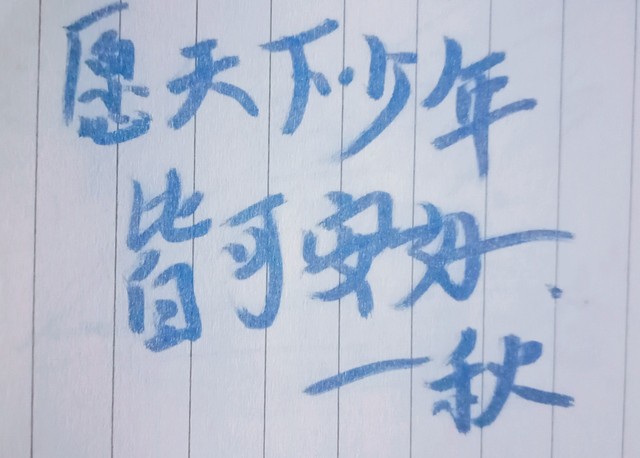 愿天下少年
皆可安好.
一秋